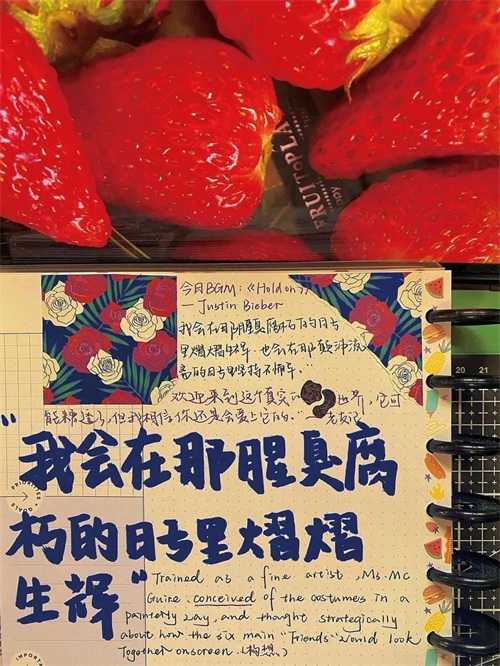 FRUIT&PLA
今日BGM:《Hold on》
— Justin Bieber
我会在那腥臭腐朽的日子
里熠熠生辉,也会在那颠沛流
离的日子坚持不懈
欢迎来到这个真实的世界,它可
能糟透了,但我相信你还是会爱上它的."
老友记
"我会在那腥臭腐
朽的日子里熠熠
生辉"
PRIORITIES
GOALS
Trained as a fine artist, Ms. Mc
Guire conceived of the costumes in a
painterly way, and thought strategically
about how the six main "Friends" would look
together onscreen. (构想)
IMPORTA
20 21